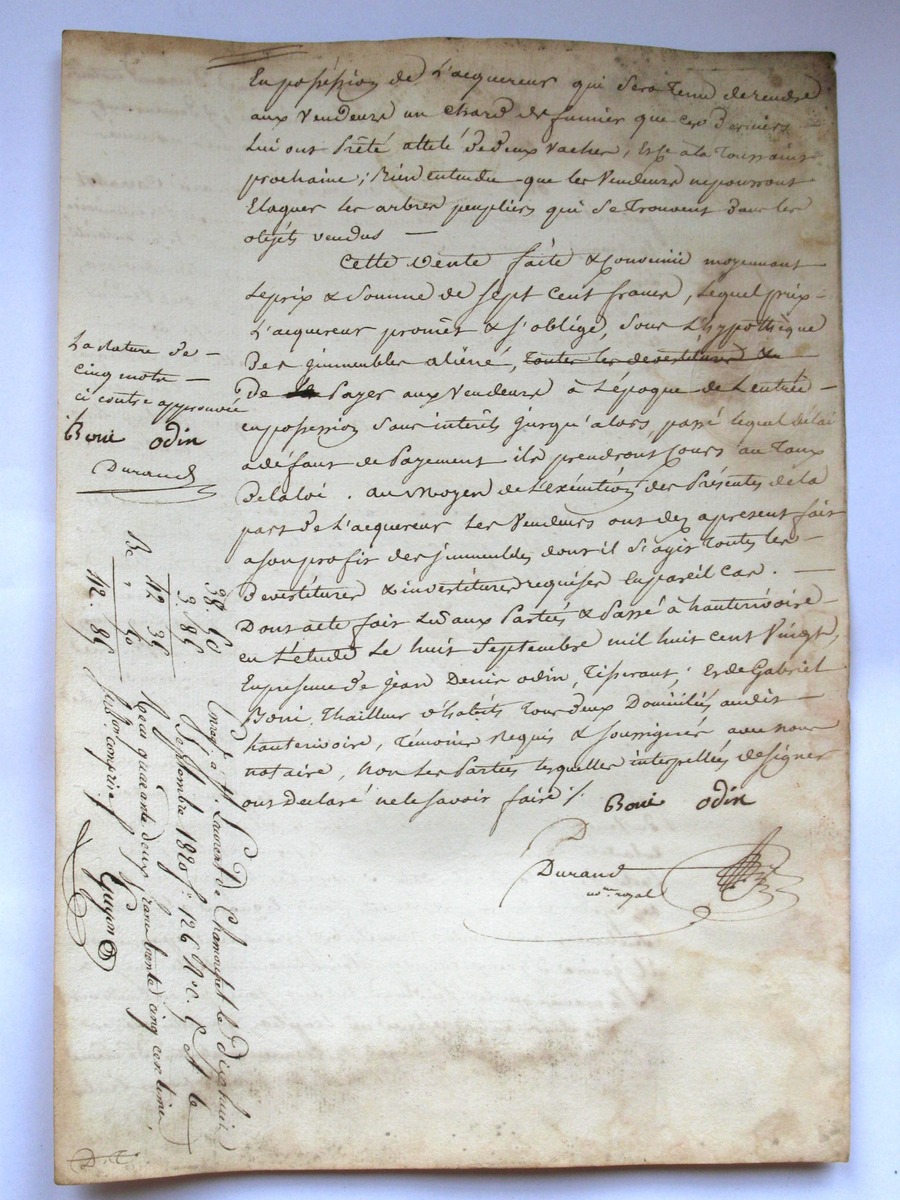 En posséssion de L'acquereur qui Sera Tenu de rendre
aux Vendeurs un Chard de fumier que Ces Derniers
Lui ont Prêté attelé de deux Vaches, à la Toussaint
prochaine; Bien entendu que les Vendeurs ne pourront
Elaguer les arbres peupliers qui se Trouvent dans les
objets vendus —
Cette Vente faite & Convenue moyennant
Le prix & Somme de Sept Cent francs, Lequel prix
L'acquereur promet & s'oblige, Sous L'hypothèque
Des immeubles aliéné, toutes les devestitures &
De Payer aux Vendeurs à L'époque de L'entrée
en possession Sans intérêts jusqu'alors, passé lequel délai
a défaut de Payement ils prendront Cours au Taux
De la loi. au Moyen de L'exécution des Présentes de la
part de L'acquereur Les Vendeurs ont dez apresent fait
a son profit des immeubles dont il s'agit Toutes les
Devestitures & investitures requises En pareil Cas. —
Dont acte fait Lu aux Parties & Passé à hauterivoire
en L'étude Le huit Septembre mil huit Cent Vingt,
En présence de Jean Denis odin, Tisserant; Et de Gabriel
Boni, Thailleur d'habits Tous deux Domiciliés audit
hauterivoire, Témoins Requis & Soussignés avec nous
notaire, Non Les Parties lesquelles interpellées de signer
ont Déclaré ne le Savoir faire ./.
Boni odin
Durand
no.re royal
La Rature de
Cinq mots
ci contre approuvée
Boni odin
Durand
38. 50
3. 85
42 35
Be " 50
42. 85
Enreg. à St. Laurent de Chamousset le Dix huit
Septembre 1820 f.° 126 N.° C.
Reçu quarante deux francs trente cinq centimes,
Guyon